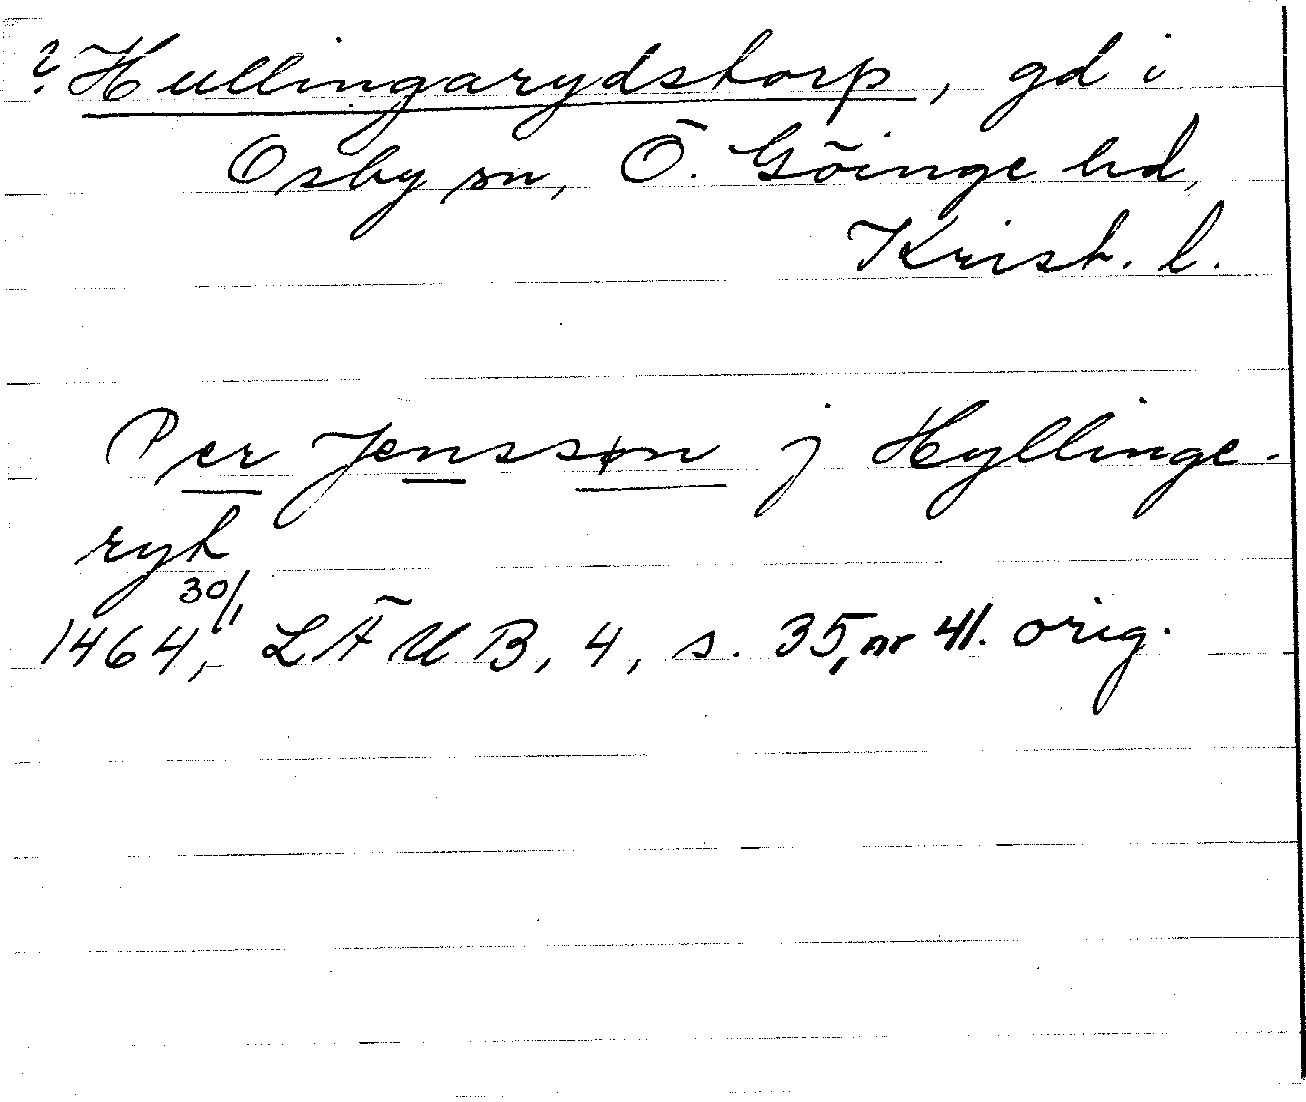 ? Hullingarydstorp, gd i
Osby sn, Ö. Göinge hd,
Krist. l.
Per Jenssøn j Hyllinge-
ryt
1464 30/1, LÄUB, 4, s. 35, nr 41. orig.